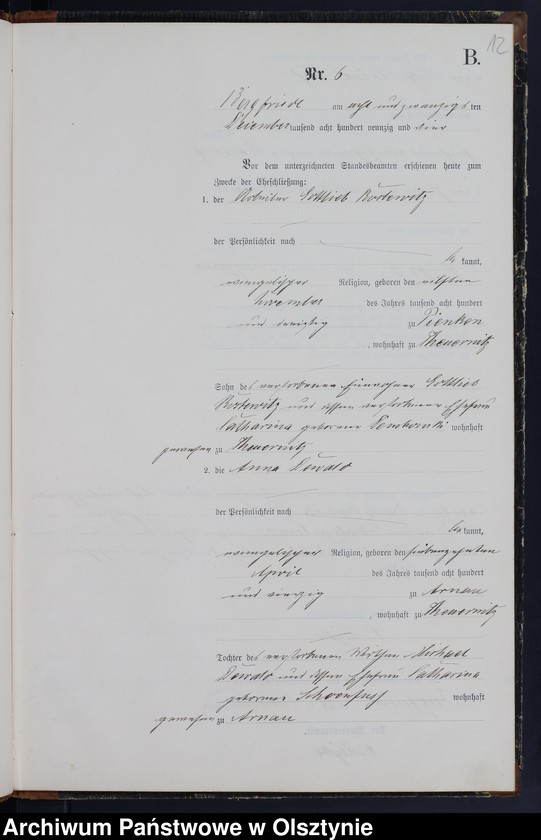 12
B.
Nr. 6
Bergfriede am acht und zwanzigsten
Dezember tausend acht hundert neunzig und vier
Vor dem unterzeichneten Standesbeamten erschienen heute zum
Zwecke der Eheschließung:
1. der Arbeiter Gottlieb
der Persönlichkeit nach
be kannt,
evangelischer Religion, geboren den elften
November des Jahres tausend acht hundert
und dreißig zu Pienken
, wohnhaft zu Theuernitz
Sohn des verstorbenen Gottlieb
und dessen verstorbener Ehefrau
Catharina geborene wohnhaft
gewesen zu Theuernitz
2. die Anna
der Persönlichkeit nach
be kannt,
evangelischer Religion, geboren den siebenzehnten
April des Jahres tausend acht hundert
und vierzig zu Arnau
, wohnhaft zu Theuernitz
Tochter des verstorbenen Wirthen Michael
und dessen Ehefrau Catharina
geborene wohnhaft
gewesen zu Arnau
Archiwum Państwowe w Olsztynie